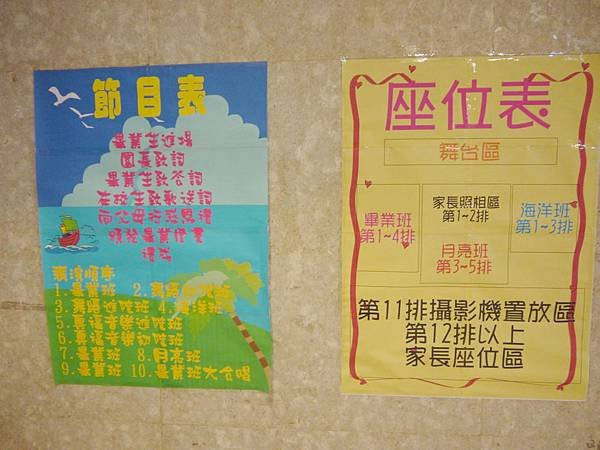 節目表
畢業生進場
園長致詞
畢業生致答詞
在校生致歡送詞
向父母行致恩禮
頒發畢業證書
禮成
表演順序
1.畢業班 2.舞蹈幼幼班
3.舞蹈進階班 4.海洋班
5.真福音樂進階班
6.真福音樂初階班
7.畢業班 8.月亮班
9.畢業班 10.畢業班大合唱
座位表
舞台區
畢業班
第1~4排
家長照相區
第1~2排
海洋班
第1~3排
月亮班
第3~5排
第11排攝影機置放區
第12排以上
家長座位區